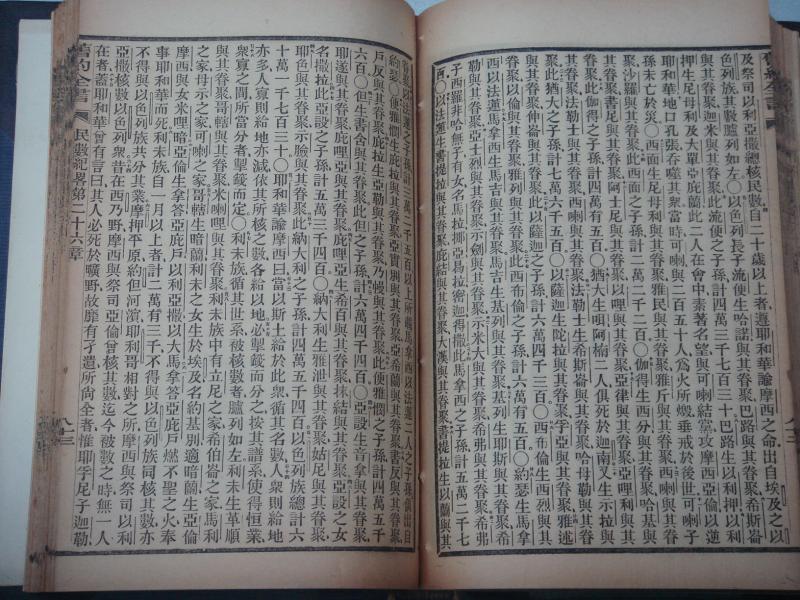 及祭司以利亞撒總核民數自二十歲以上者遵耶和華諭摩西之命出自埃及之以
色列族其數臚列如左○以色列長子流便生哈諾與其眷聚巴路與其眷聚希斯崙
與其眷聚迦米與其眷聚此流便之子孫計四萬三千七百三十巴路生以利押以利
押生尼母利及大單亞庇蘭此二人在會中素著名望與可喇結黨攻摩西亞倫以逆
耶和華地口孔張吞噬其眾當時可喇與二百五十人爲火所燬垂戒於後世可喇子
孫未亡於災○西面生尼母利與其眷聚雅民與其眷聚雅斤與其眷聚西喇與其眷
聚沙羅與其眷聚此西面之子孫計二萬二千二百○伽得生西分與其眷聚哈基與
其眷聚書尼與其眷聚阿士尼與其眷聚以哩與其眷聚亞律與其眷聚亞哩倫與其
眷聚此伽得之子孫計四萬零五百○猶大生咡阿楠二人俱死於迦南又生示拉與
其眷聚法勒士與其眷聚西喇與其眷聚法勒士生希斯崙與其眷聚哈母勒與其眷
聚此猶大之子孫計七萬六千五百○以薩迦生陀拉與其眷聚孚亞與其眷聚雅述
與其眷聚伸崙與其眷聚此以薩迦之子孫計六萬四千三百○西布倫生西烈與其
眷聚以倫與其眷聚雅列與其眷聚此西布倫之子孫計六萬零五百○約瑟生馬拿
西以法蓮馬拿西生馬吉與其眷聚馬吉生基列與其眷聚基列生耶斯與其眷聚希
勒與其眷聚亞士烈與其眷聚示劍與其眷聚示米大與其眷聚希弗與其眷聚希弗
子西羅非哈無子有女名馬拉挪亞曷拉密迦得撒此馬拿西之子孫計五萬二千七
百○以法蓮生書提拉與其眷聚庇結與其眷聚大漢與其眷聚書提拉生以蘭與其
眷聚此以法蓮之子孫計三萬二千五百以上所載馬拿西以法蓮二人之子孫俱出自
約瑟○便雅憫生庇拉與其眷聚亞實別與其眷聚亞希蘭與其眷聚書反與其眷聚
戶反與其眷聚庇拉生亞勒與其眷聚乃幔與其眷聚此便雅憫之子孫計四萬五千
六百○但生書含與其眷聚此但之子孫計六萬四千四百○亞設生音拿與其眷聚
耶遂與其眷聚庇哩亞與其眷聚庇哩亞生希百與其眷聚抹結與其眷聚亞設之女
名撒拉此亞設之子孫計五萬三千四百○納大利生雅泄與其眷聚姑尼與其眷聚
耶色與其眷聚示臉與其眷聚此納大利之子孫計四萬五千四百以色列族總計六
十萬一千七百三十○耶和華諭摩西曰當以斯土給於此眾循其名數人衆則給地
亦多人寡則給地亦減依其所核之數各給以地必掣籤而分之按其譜系使得恒業
衆寡之間所當分者掣籤而定○利未族循其世系被核數者臚列如左利未生革順
與其眷聚哥轄與其眷聚米喇哩與其眷聚利未族中有立尼之家希伯崙之家馬利
之家母示之家可喇之家哥轄生暗蘭利未之女生於埃及名約基別適暗蘭生亞倫
摩西與女米哩暗亞倫生拿答亞庇戶以利亞撒以大馬拿答亞庇戶燃不聖之火奉
事耶和華而死利未族自一月以上者計二萬有三千不得與以色列族同核其數亦
不得與以色列族共分其業摩押平原約但河濱耶利哥相對之所摩西與祭司以利
亞撒核數以色列衆昔在西乃野摩西與祭司亞倫曾核其數迄今被數之時無一人
在者蓋耶和華曾有言曰其人必死於曠野故靡有孑遺所尚全者惟耶孚尼子迦勒
舊約全書 民數紀畧第二十六章 八十三